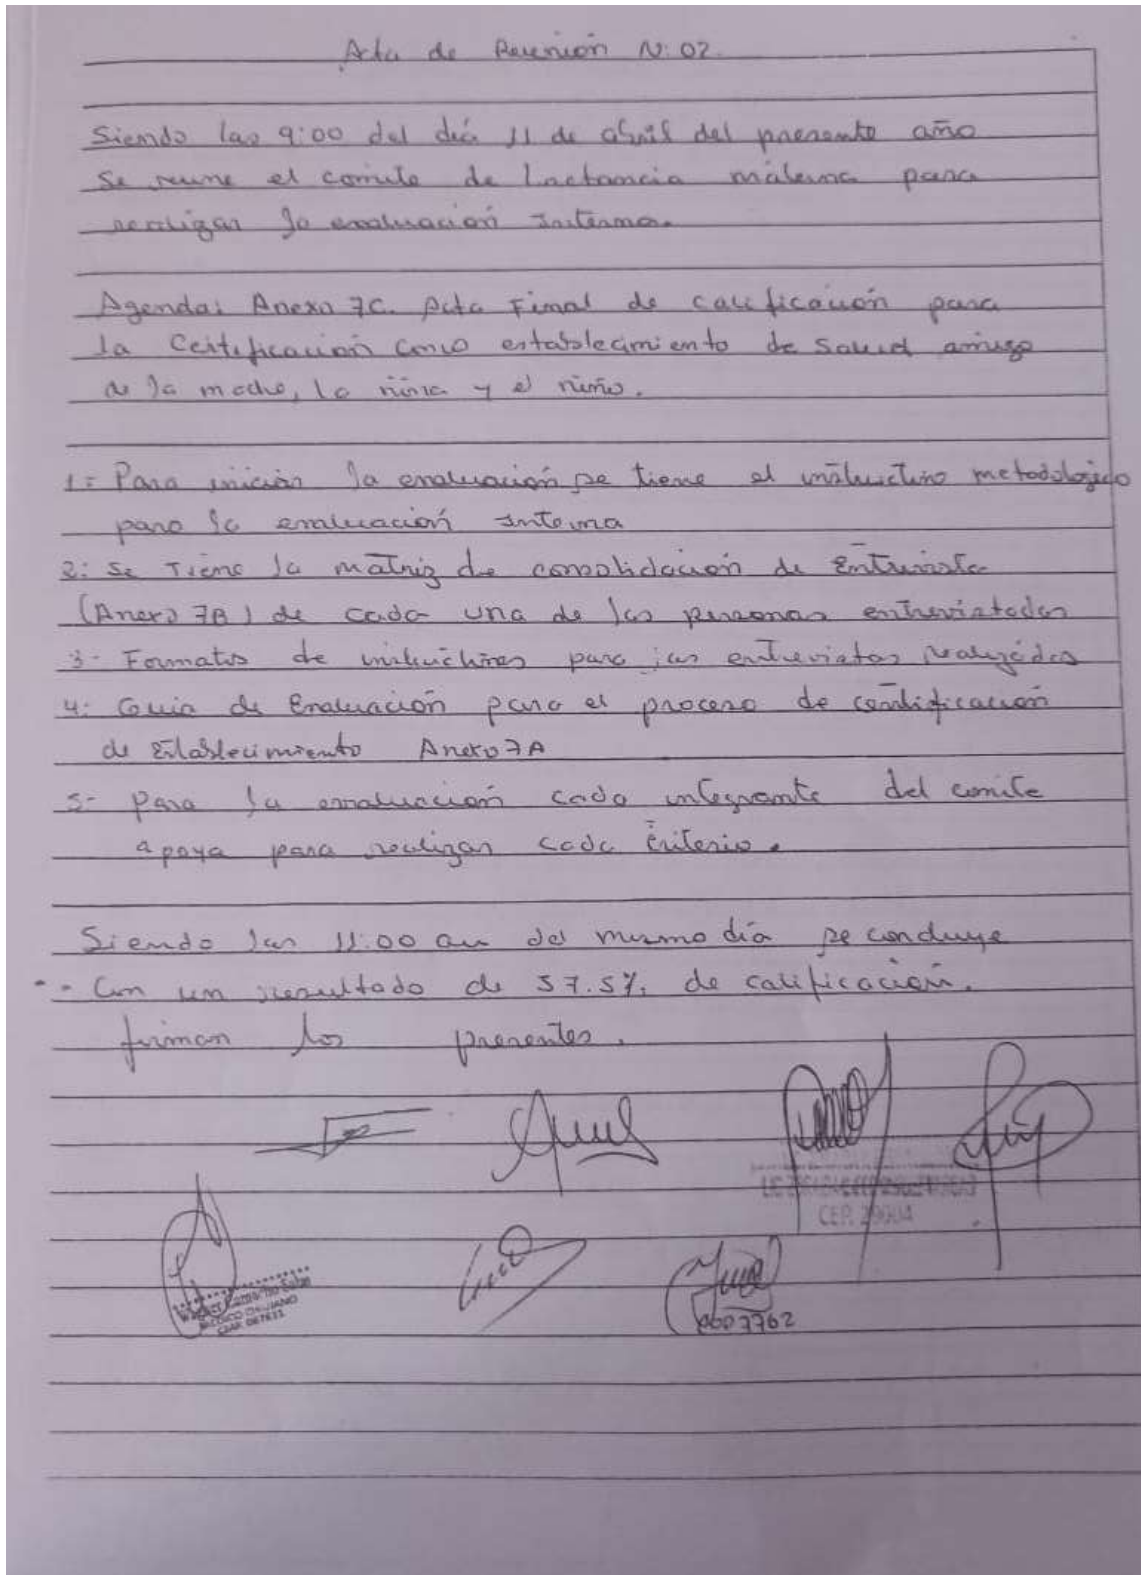 Acta de Reunión N: 02.
Siendo las 9:00 del día 11 de abril del presente año
se reune el comite de Lactancia materna para
realizar la evaluación Interna.
Agenda: Anexo 7C. Acta Final de calificación para
la Certificación como establecimiento de Salud amigo
de la madre, la niña y el niño.
1= Para iniciar la evaluación se tiene el instructivo metodologico
para la evaluación Interna
2: Se Tiene la matriz de consolidación de Entrevista
(Anexo 7B) de cada una de las personas entrevistadas
3- Formatos de instructivos para las entrevistas realizadas
4: Guia de Evaluación para el proceso de certificación
de Establecimiento Anexo 7A
5- Para la evaluación cada integrante del comite
apoya para realizar cada criterio.
Siendo las 11:00 am del mismo día se concluye
-- Con un resultado de 57.5% de calificación.
firman los presentes.
CEP. 29904
MEDICO CIRUJANO
0607762